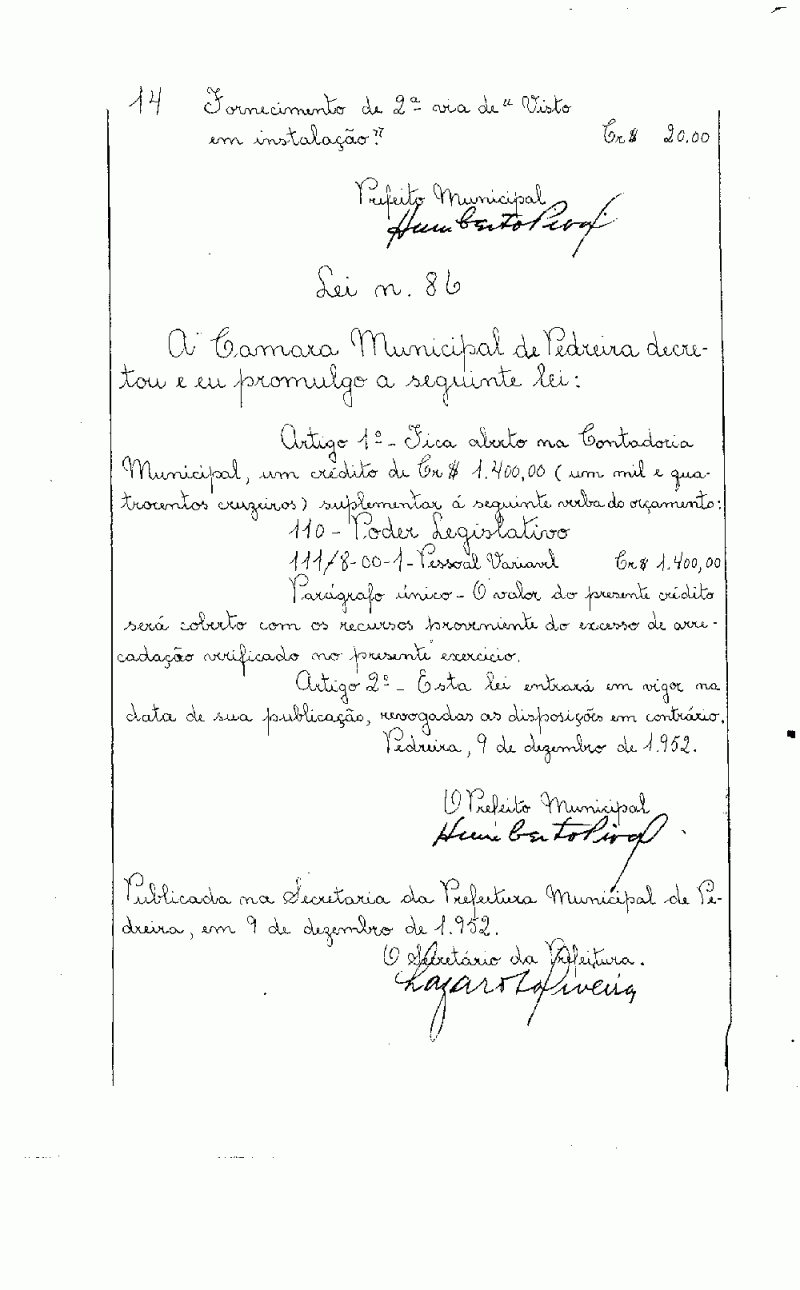 14 Fornecimento de 2ª via de "Visto
em instalação" Cr$ 20.00
Prefeito Municipal
Humberto Piva
Lei n. 86
A Camara Municipal de Pedreira decre-
tou e eu promulgo a seguinte lei:
Artigo 1º - Fica aberto na Contadoria
Municipal, um crédito de Cr$ 1.400,00 (um mil e qua-
trocentos cruzeiros) suplementar á seguinte verba do orçamento:
110 - Poder Legislativo
111/8-00-1 - Pessoal Variavel Cr$ 1.400,00
Parágrafo único - O valor do presente crédito
será coberto com os recursos proveniente do excesso de arre-
cadação verificado no presente exercício.
Artigo 2º - Esta lei entrará em vigor na
data de sua publicação, revogadas as disposições em contrário.
Pedreira, 9 de dezembro de 1.952.
O Prefeito Municipal
Humberto Piva
Publicada na Secretaria da Prefeitura Municipal de Pe-
dreira, em 9 de dezembro de 1.952.
O Secretário da Prefeitura.
Lazaro Oliveira